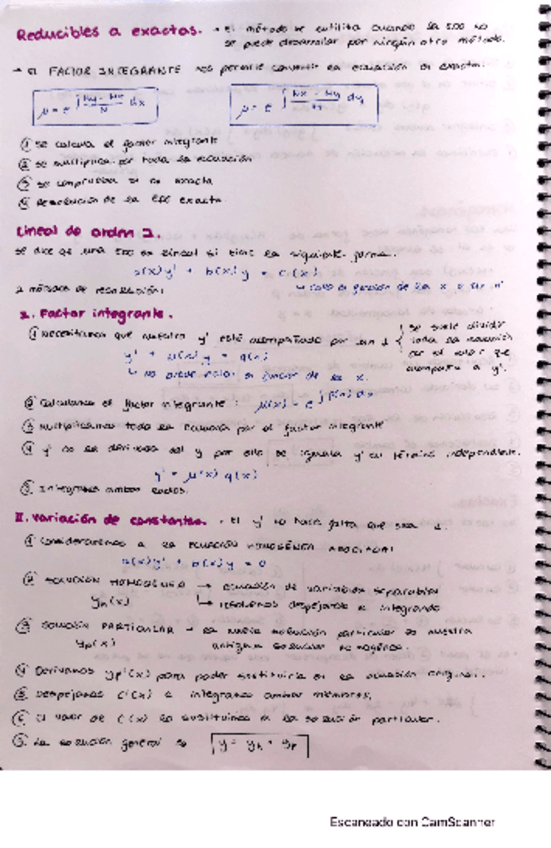 Reducibles a exactas. → El método se utiliza cuando la EDO no
se puede desarrollar por ningún otro método.
→ El FACTOR INTEGRANTE nos permite convertir la ecuación en exacta.
μ = e^∫ (My - Nx)/N dx      μ = e^∫ (Nx - My)/M dy
① Se calcula el factor integrante
② Se multiplica por toda la ecuación
③ Se comprueba si es exacta
④ Resolución de la EDO exacta.
Lineal de orden 1.
Se dice que una EDO es lineal si tiene la siguiente forma.
a(x)y' + b(x)y = c(x)
2 métodos de resolución:
I. Factor integrante.
① Necesitamos que nuestro y' esté acompañado por un 1 { se suele dividir
toda la ecuación
por el valor que
acompaña a y'.
y' + p(x)y = q(x)
② Calculamos el factor integrante: μ(x) = e^∫p(x)dx
③ Multiplicamos toda la ecuación por el factor integrante
④ y' es la derivada del y por ello se iguala y' al término independiente.
y' = μ(x) q(x)
⑤ Integramos ambos lados.
II. Variación de constantes. → El y' no hace falta que sea 1.
① Consideraremos a la ECUACIÓN HOMOGÉNEA ASOCIADA:
a(x)y' + b(x)y = 0
② SOLUCIÓN HOMOGÉNEA → ecuación de variables separables
yh(x) → resolvemos despejando e integrando
③ SOLUCIÓN PARTICULAR → la nueva solución particular es nuestra
yp(x) antigua solución homogénea.
④ Derivamos yp(x) para poder sustituirla en la ecuación original.
⑤ Despejamos C'(x) e integramos ambos miembros.
⑥ El valor de C(x) lo sustituimos en la solución particular.
⑦ La solución general es y = yh + yp
Escaneado con CamScanner